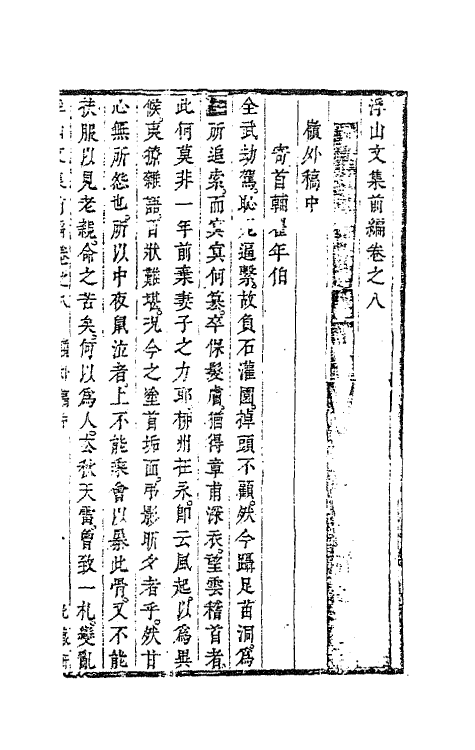 浮山文集前編卷之八
嶺外稿中
寄首輔瞿年伯
全武劫駕恥逼繫故負石灌園掉頭不顧然今躡足苗洞為
所追索而冥冥何篡卒保髮膚猶得章甫深衣望雲稽首者
此何莫非一年前棄妻子之力耶柳州在永即云風起以為異
候夷獠雜語百狀難堪況今之塗首垢面弔影昕夕者乎然甘
心無所怨也所以中夜鼠泣者上不能乘會以暴此骨又不能
扶服以見老親命之苦矣何以為人去秋天雷曾致一札變亂